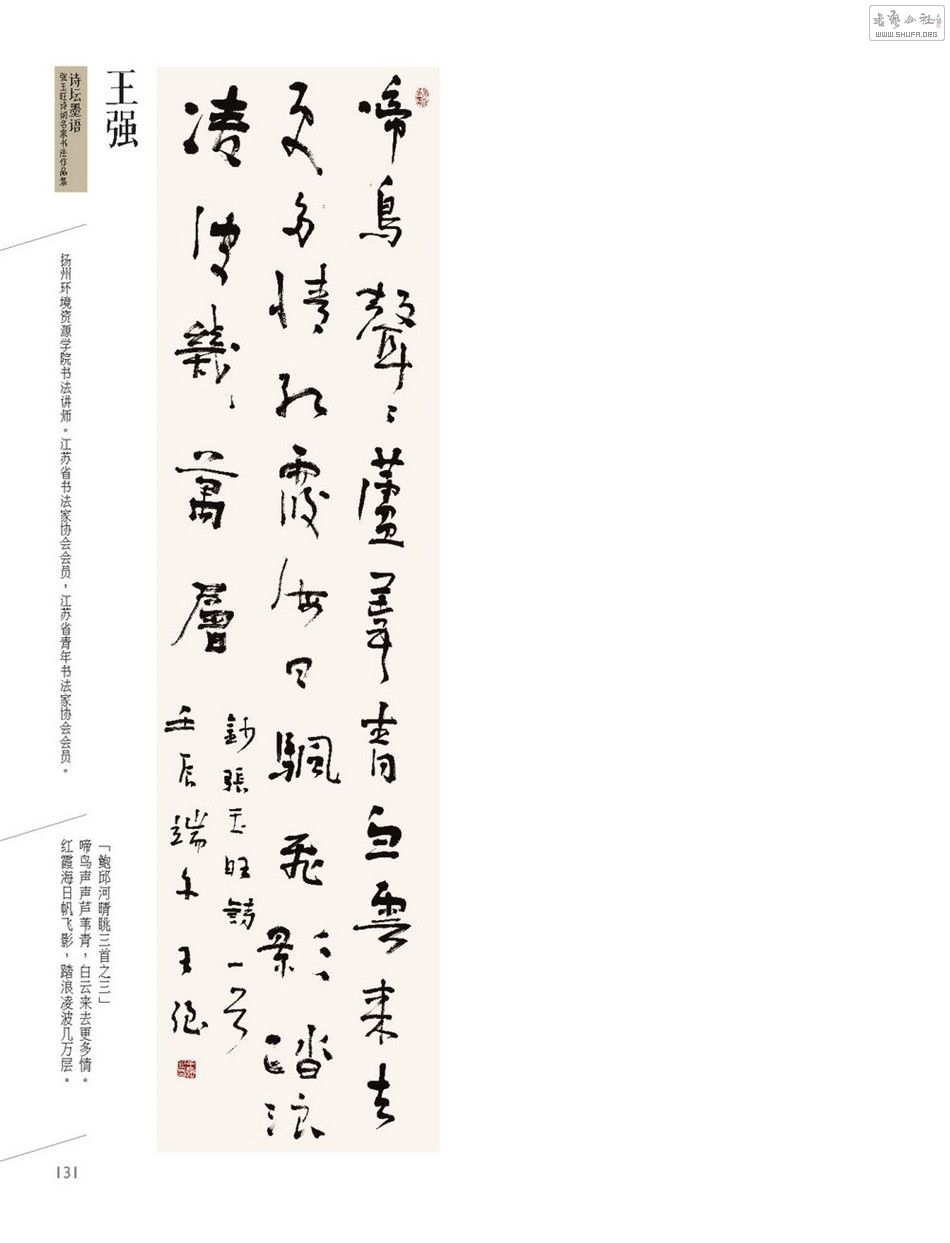 书艺公社
WWW.SHUFA.ORG
诗坛墨语
张玉旺诗词名家书法作品集
王强
啼鳥聲〻蘆葦青白雲来去
更多情紅霞海日颿飛影踏浪
凌波幾萬層
鈔張玉旺詩一首
壬辰端午王强
扬州环境资源学院书法讲师。江苏省书法家协会会员，江苏省青年书法家协会会员。
「鲍邱河晴眺三首之三」
啼鸟声声芦苇青，白云来去更多情。
红霞海日帆飞影，踏浪凌波几万层。
131